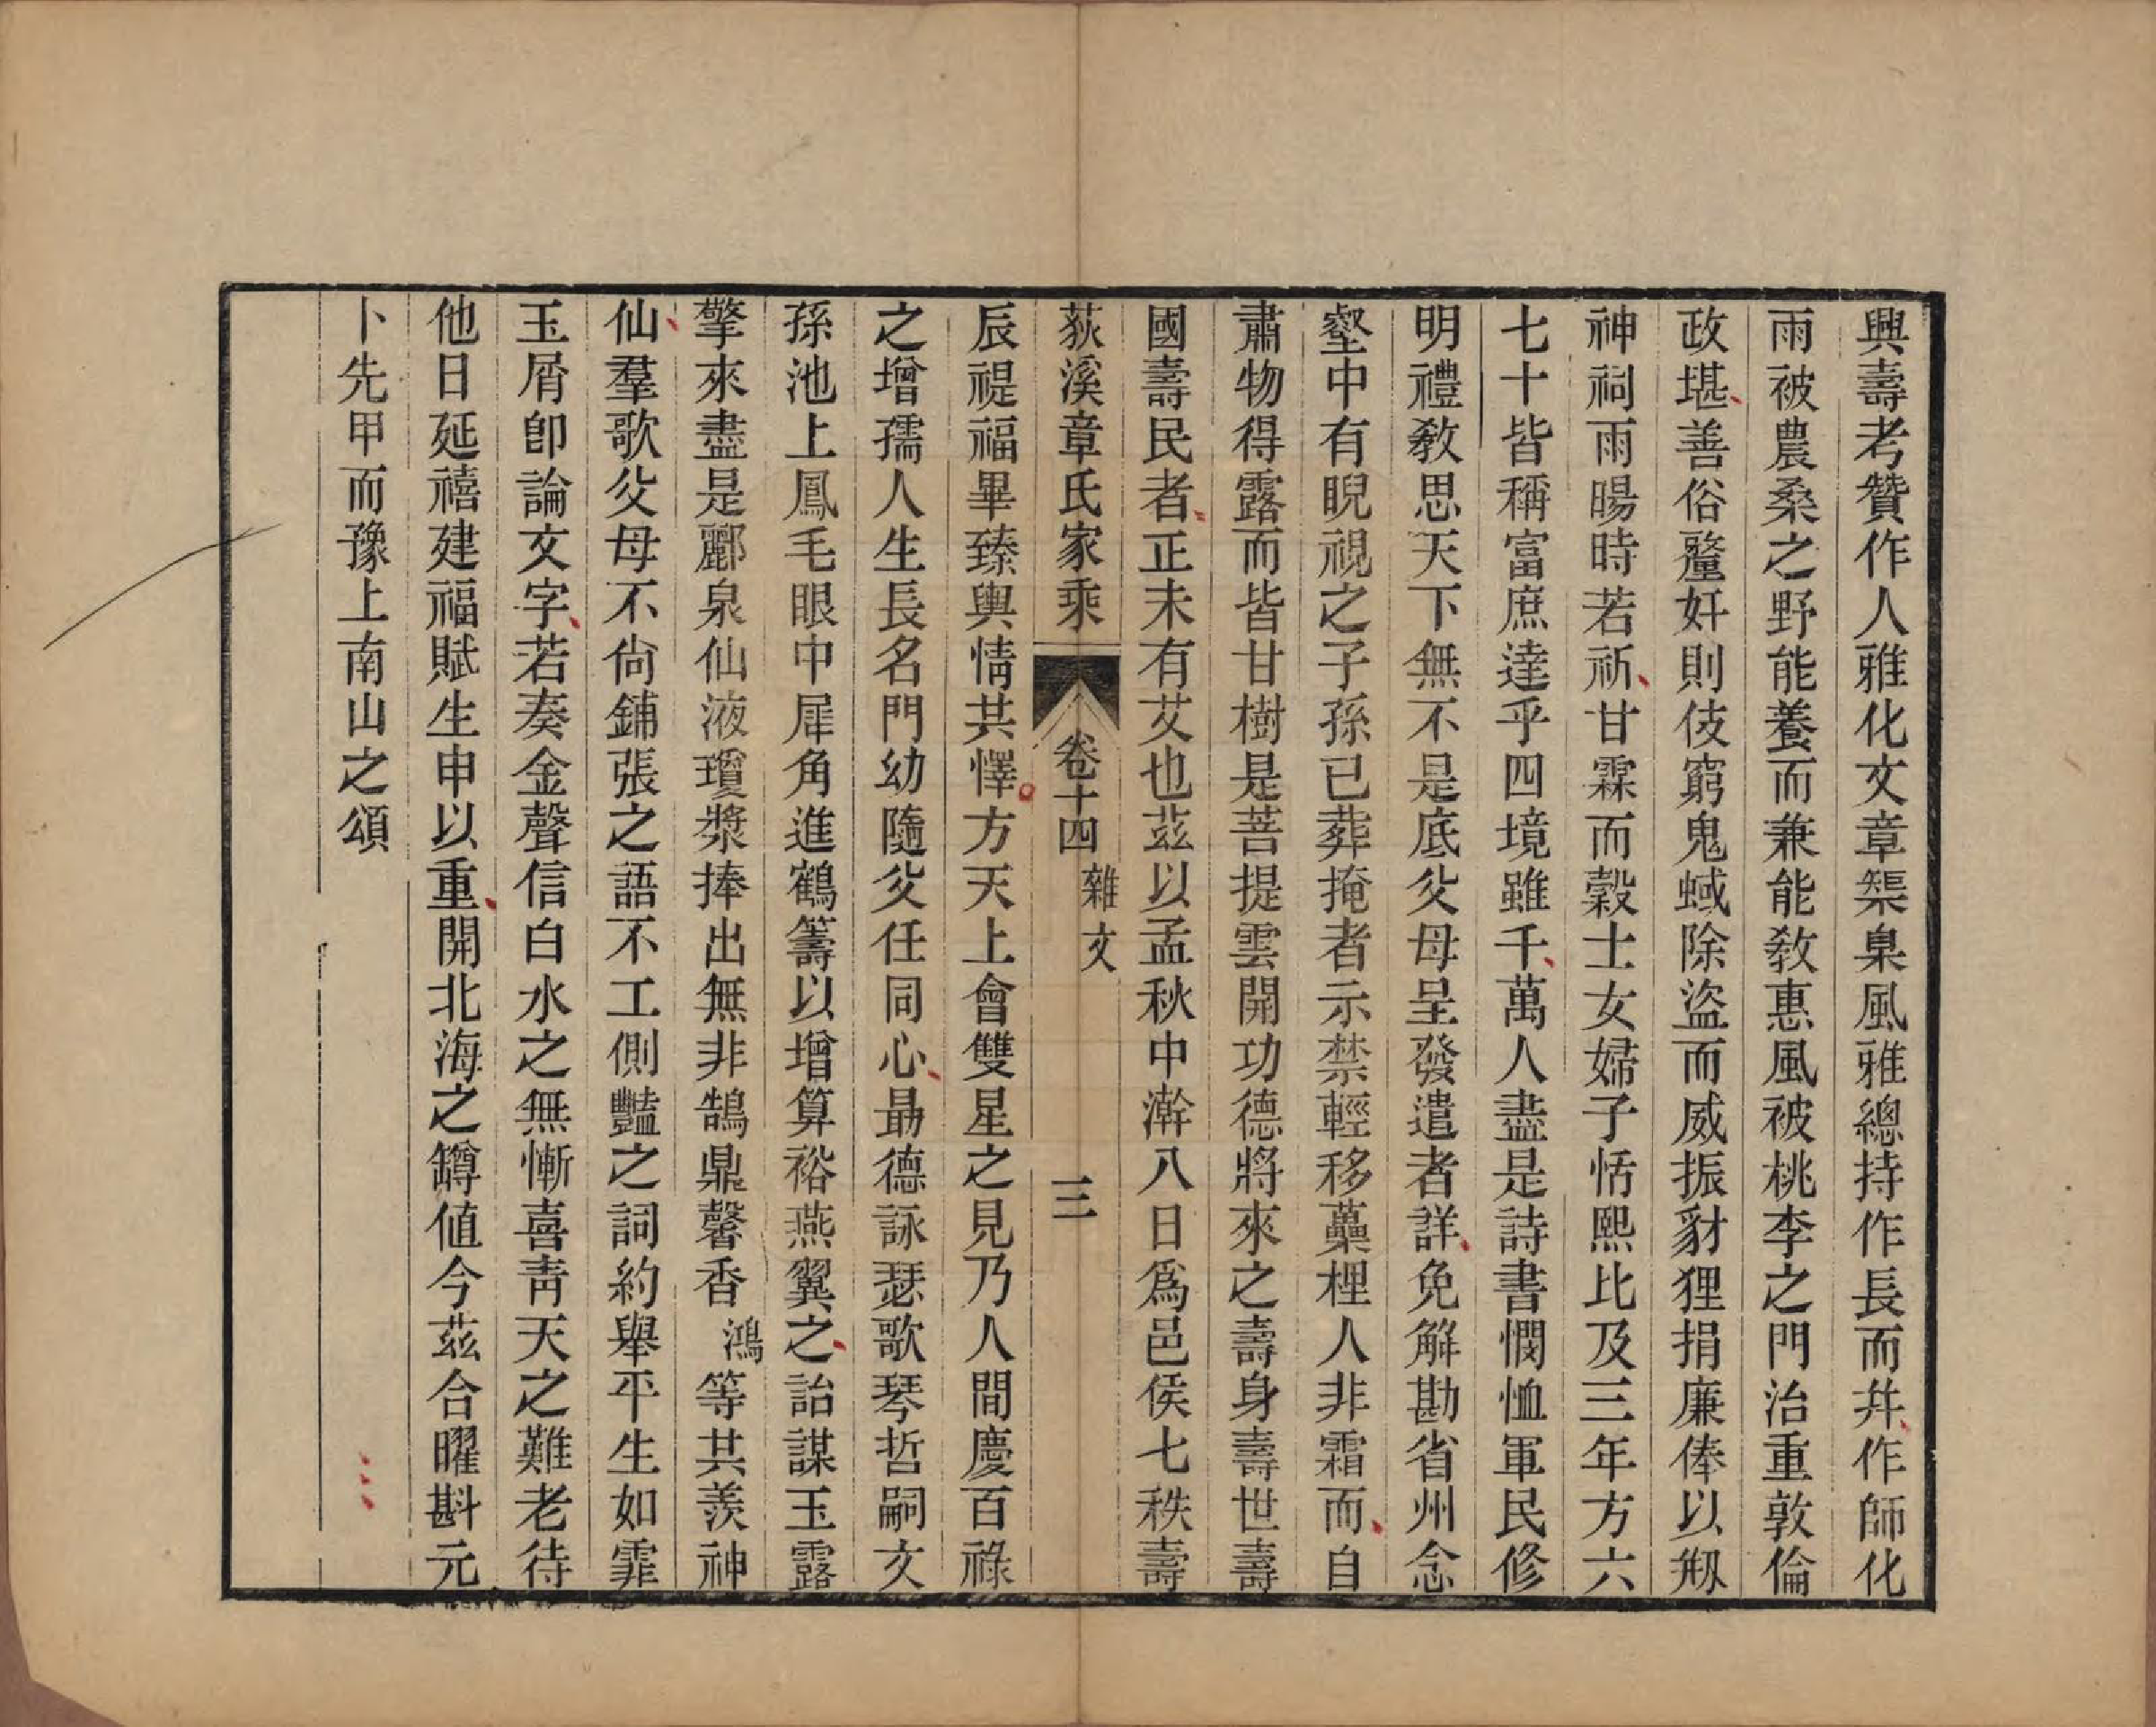 興壽考贊作人雅化文章榘臬風雅總持作長而幷作師化
雨被農桑之野能養而兼能敎惠風被桃李之門治重敦倫
政堪善俗釐奸則伎窮鬼蜮除盜而威振豺狸捐廉俸以剏
神祠雨暘時若祈甘霖而穀士女婦子恬熙比及三年方六
七十皆稱富庶達乎四境雖千萬人盡是詩書憫恤軍民修
明禮敎思天下無不是底父母呈發遣者詳免解勘省州念
壑中有睨視之子孫已葬掩者示禁輕移虆梩人非霜而自
肅物得露而皆甘樹是菩提雲開功德將來之壽身壽世壽
國壽民者正未有艾也茲以孟秋中澣八日爲邑侯七秩壽
荻溪章氏家乘 卷十四 雜文 三
辰禔福畢臻輿情共懌方天上會雙星之見乃人間慶百祿
之增孺人生長名門幼隨父任同心勗德詠瑟歌琴哲嗣文
孫池上鳳毛眼中犀角進鶴籌以增算裕燕翼之詒謀玉露
擎來盡是酈泉仙液瓊漿捧出無非鵠鼎馨香鴻等共羨神
仙羣歌父母不尙鋪張之語不工側豔之詞約舉平生如霏
玉屑卽論文字若奏金聲信白水之無慚喜靑天之難老待
他日延禧建福賦生申以重開北海之罇値今茲合曜斟元
卜先甲而豫上南山之頌